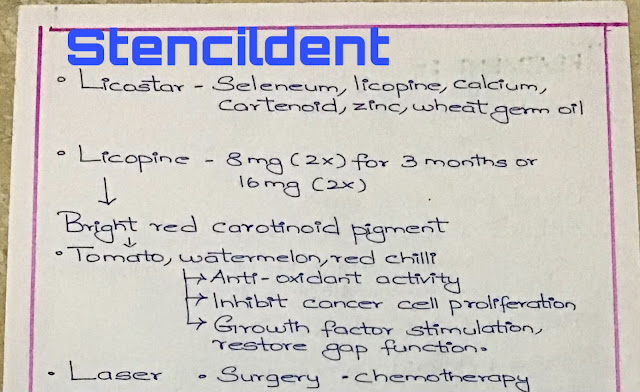 Stencildent
• Licastar - Seleneum, licopine, calcium,
cartenoid, zinc, wheat germ oil
• Licopine - 8mg (2x) for 3 months or
16mg (2x)
↓
Bright red carotinoid pigment
↓
• Tomato, watermelon, red chilli
↳ Anti-oxidant activity
↳ Inhibit cancer cell proliferation
↳ Growth factor stimulation,
restore gap function.
• Laser • Surgery • chemotherapy